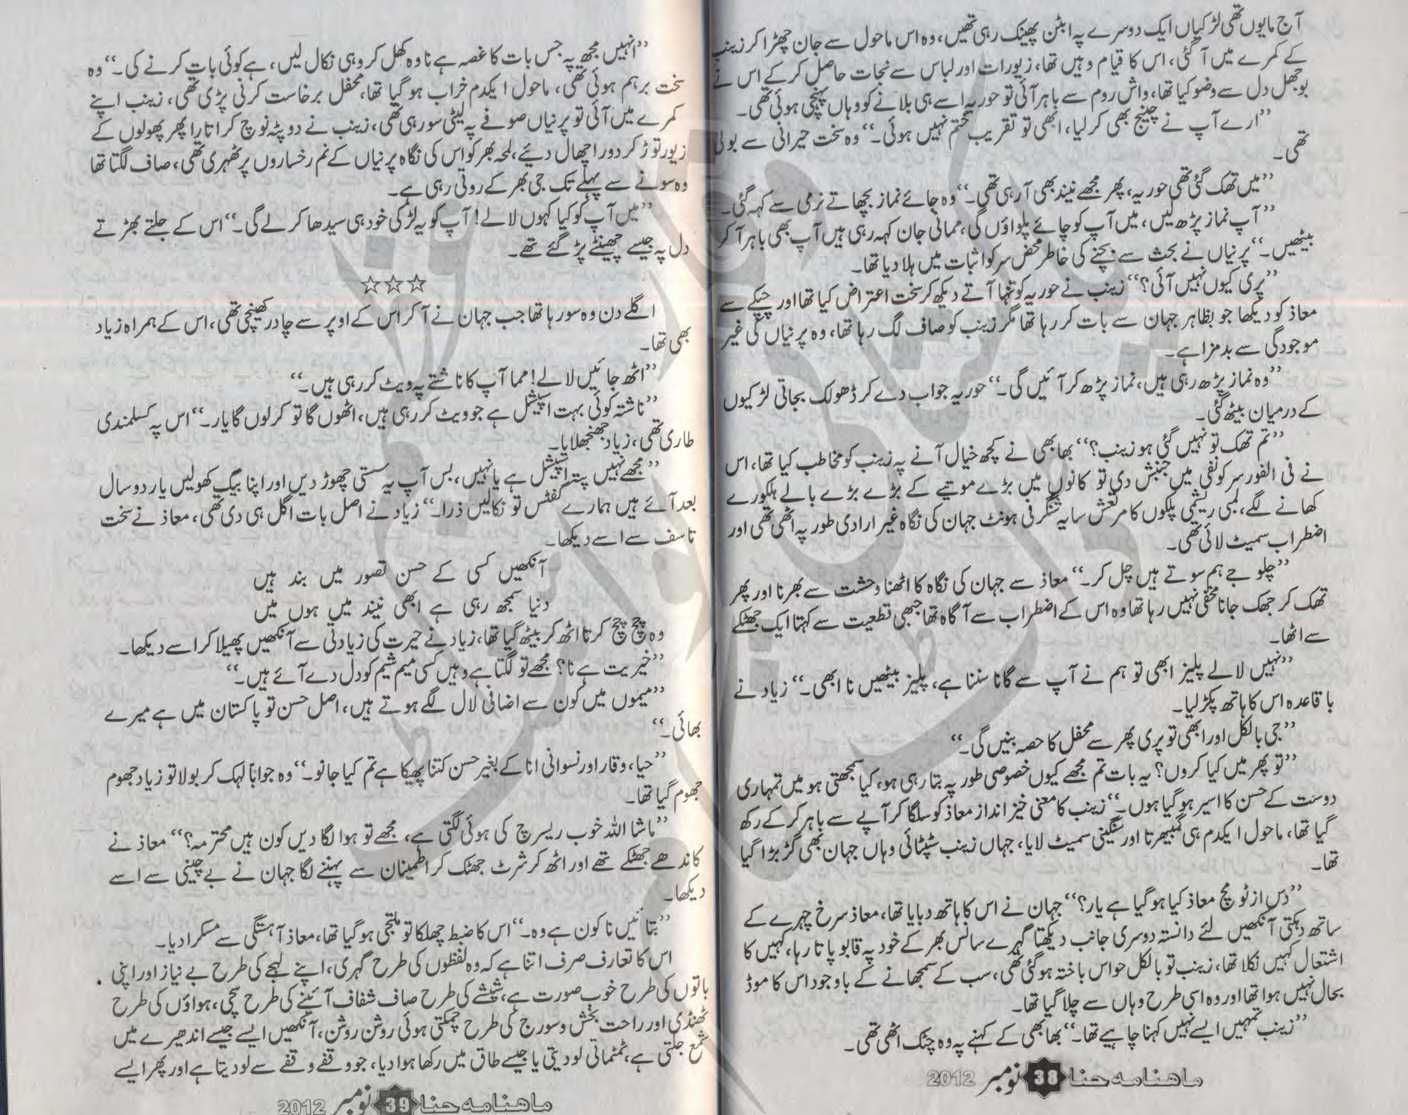 آج مایوں تھی لڑکیاں ایک دوسرے پہ ابٹن پھینک رہی تھیں، وہ اس ماحول سے جان چھڑا کر زینب
کے کمرے میں آ گئی، اس کا قیام وہیں تھا، زیورات اور لباس سے نجات حاصل کر کے اس نے
بوجھل دل سے وضو کیا تھا، واش روم سے باہر آئی تو حوریہ اسے ہی بلانے کو وہاں پہنچی ہوئی تھی۔
’’ارے آپ نے چینج بھی کر لیا، ابھی تو تقریب ختم نہیں ہوئی۔‘‘ وہ سخت حیرانی سے بولی
تھی۔
’’میں تھک گئی تھی حوریہ، پھر مجھے نیند بھی آ رہی تھی۔‘‘ وہ جائے نماز بچھاتے نرمی سے کہہ گئی۔
’’آپ نماز پڑھ لیں، میں آپ کو چائے پلواؤں گی، ممانی جان کہہ رہی ہیں آپ بھی باہر آ کر
بیٹھیں۔‘‘ پرنیاں نے بحث سے بچنے کی خاطر محض سر کو اثبات میں ہلا دیا تھا۔
’’پری کیوں نہیں آئی؟‘‘ زینب نے حوریہ کو تنہا آتے دیکھ کر سخت اعتراض کیا تھا اور چپکے سے
معاذ کو دیکھا جو بظاہر جہان سے بات کر رہا تھا مگر زینب کو صاف لگ رہا تھا، وہ پرنیاں کی غیر
موجودگی سے بدمزا ہے۔
’’وہ نماز پڑھ رہی ہیں، نماز پڑھ کر آئیں گی۔‘‘ حوریہ جواب دے کر ڈھولک بجاتی لڑکیوں
کے درمیان بیٹھ گئی۔
’’تم تھک تو نہیں گئی ہو زینب؟‘‘ بھابھی نے کچھ خیال آنے پہ زینب کو مخاطب کیا تھا، اس
نے فی الفور سر کو نفی میں جنبش دی تو کانوں میں بڑے موتیے کے بڑے بڑے بالے ہلکورے
کھانے لگے، لمبی ریشمی پلکوں کا مرتعش سایہ شنگرفی ہونٹ جہان کی نگاہ غیر ارادی طور پہ اٹھی تھی اور
اضطراب سمیٹ لائی تھی۔
’’چلو جے ہم سوتے ہیں چل کر۔‘‘ معاذ سے جہان کی نگاہ کا اٹھنا وحشت سے بھرنا اور پھر
تھک کر جھک جانا مخفی نہیں رہا تھا وہ اس کے اضطراب سے آگاہ تھا جبھی قطعیت سے کہتا ایک جھٹکے
سے اٹھا۔
’’نہیں لالے پلیز ابھی تو ہم نے آپ سے گانا سننا ہے، پلیز بیٹھیں نا ابھی۔‘‘ زیاد نے
باقاعدہ اس کا ہاتھ پکڑ لیا۔
’’جی بالکل اور ابھی تو پری پھر سے محفل کا حصہ بنیں گی۔‘‘
’’تو پھر میں کیا کروں؟ یہ بات تم مجھے کیوں خصوصی طور پہ بتا رہی ہو، کیا سمجھتی ہو میں تمہاری
دوست کے حسن کا اسیر ہو گیا ہوں۔‘‘ زینب کا معنی خیز انداز معاذ کو سلگا کر آپے سے باہر کر کے رکھ
گیا تھا، ماحول ایکدم ہی گمبھیرتا اور سنگینی سمیٹ لایا، جہاں زینب سٹپٹائی وہاں جہان بھی گڑبڑا گیا
تھا۔
’’دس از ٹو مچ معاذ کیا ہو گیا ہے یار؟‘‘ جہان نے اس کا ہاتھ دبایا تھا، معاذ سرخ چہرے کے
ساتھ دہکتی آنکھیں لئے دانستہ دوسری جانب دیکھتا گہرے سانس بھر کے خود پہ قابو پاتا رہا، کہیں کا
اشتعال کہیں نکلا تھا، زینب تو بالکل حواس باختہ ہو گئی تھی، سب کے سمجھانے کے باوجود اس کا موڈ
بحال نہیں ہوا تھا اور وہ اسی طرح وہاں سے چلا گیا تھا۔
’’زینب تمہیں ایسے نہیں کہنا چاہیے تھا۔‘‘ بھابھی کے کہنے پہ وہ چٹک اٹھی تھی۔
ماهنامه حنا 38 نومبر 2012
’’انہیں مجھ پہ جس بات کا غصہ ہے نا وہ کھل کر وہی نکال لیں، ہے کوئی بات کرنے کی۔‘‘ وہ
سخت برہم ہوئی تھی، ماحول ایکدم خراب ہو گیا تھا، محفل برخاست کرنی پڑی تھی، زینب اپنے
کمرے میں آئی تو پرنیاں صوفے پہ لیٹی سو رہی تھی، زینب نے دوپٹہ نوچ کر اتارا پھر پھولوں کے
زیور توڑ کر دور اچھال دیئے، لمحہ بھر کو اس کی نگاہ پرنیاں کے نم رخساروں پر ٹھہری تھی، صاف لگتا تھا
وہ سونے سے پہلے تک جی بھر کے روتی رہی ہے۔
’’میں آپ کو کیا کہوں لالے! آپ کو یہ لڑکی خود ہی سیدھا کر لے گی۔‘‘ اس کے جلتے بھڑتے
دل پہ جیسے چھینٹے پڑ گئے تھے۔
☆☆☆
اگلے دن وہ سو رہا تھا جب جہان نے آ کر اس کے اوپر سے چادر کھینچی تھی، اس کے ہمراہ زیاد
بھی تھا۔
’’اٹھ جائیں لالے! مما آپ کا ناشتے پہ ویٹ کر رہی ہیں۔‘‘
’’ناشتہ کوئی بہت اسپیشل ہے جو ویٹ کر رہی ہیں، اٹھوں گا تو کر لوں گا یار۔‘‘ اس پہ کسلمندی
طاری تھی، زیاد جھنجھلایا۔
’’مجھے نہیں پتہ اسپیشل ہے یا نہیں، بس آپ یہ سستی چھوڑ دیں اور اپنا بیگ کھولیں یار دو سال
بعد آئے ہیں ہمارے گفٹس تو نکالیں ذرا۔‘‘ زیاد نے اصل بات اگل ہی دی تھی، معاذ نے سخت
تاسف سے اسے دیکھا۔
آنکھیں کسی کے حسن تصور میں بند ہیں
دنیا سمجھ رہی ہے ابھی نیند میں ہوں میں
وہ چچ چچ کرتا اٹھ کر بیٹھ گیا تھا، زیاد نے حیرت کی زیادتی سے آنکھیں پھیلا کر اسے دیکھا۔
’’خیریت ہے نا؟ مجھے تو لگتا ہے وہیں کسی میم شیم کو دل دے آئے ہیں۔‘‘
’’میموں میں کون سے اضافی لال لگے ہوتے ہیں، اصل حسن تو پاکستان میں ہے میرے
بھائی۔‘‘
’’حیا، وقار اور نسوانی انا کے بغیر حسن کتنا پھیکا ہے تم کیا جانو۔‘‘ وہ جواباً لہک کر بولا تو زیاد جھوم
جھوم گیا تھا۔
’’ماشا اللہ خوب ریسرچ کی ہوئی لگتی ہے، مجھے تو ہوا لگا دیں کون ہیں محترمہ؟‘‘ معاذ نے
کاندھے جھٹکے تھے اور اٹھ کر شرٹ جھٹک کر اطمینان سے پہننے لگا جہان نے بے چینی سے اسے
دیکھا۔
’’بتائیں نا کون ہے وہ۔‘‘ اس کا ضبط چھلکا تو ملتجی ہو گیا تھا، معاذ آہستگی سے مسکرا دیا۔
اس کا تعارف صرف اتنا ہے کہ وہ لفظوں کی طرح گہری، اپنے لہجے کی طرح بے نیاز اور اپنی
باتوں کی طرح خوب صورت ہے، شیشے کی طرح صاف شفاف آئینے کی طرح سچی، ہواؤں کی طرح
ٹھنڈی اور راحت بخش و سورج کی طرح چمکتی ہوئی روشن روشن، آنکھیں ایسے جیسے اندھیرے میں
شمع جلتی ہے، ٹمٹماتی لو دیتی یا جیسے طاق میں رکھا ہوا دیا، جو وقفے وقفے سے لو دیتا ہے اور پھر ایسے
ماهنامه حنا 39 نومبر 2012